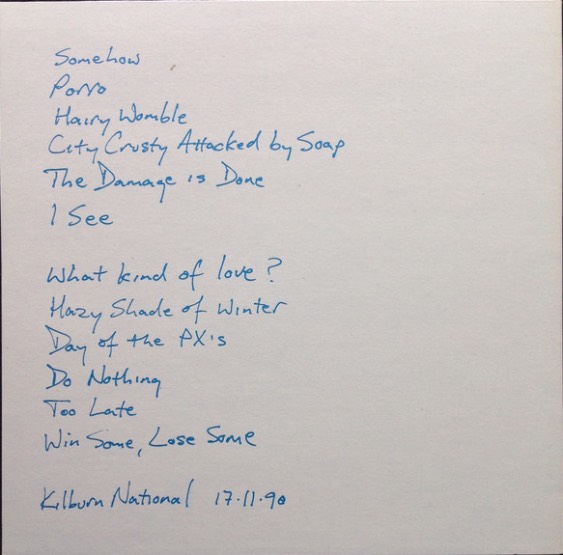 Somehow
Porro
Hairy Womble
City Crusty Attacked by Soap
The Damage is Done
I See
What kind of love?
Hazy Shade of Winter
Day of the PX's
Do Nothing
Too Late
Win Some, Lose Some
Kilburn National 17.11.90